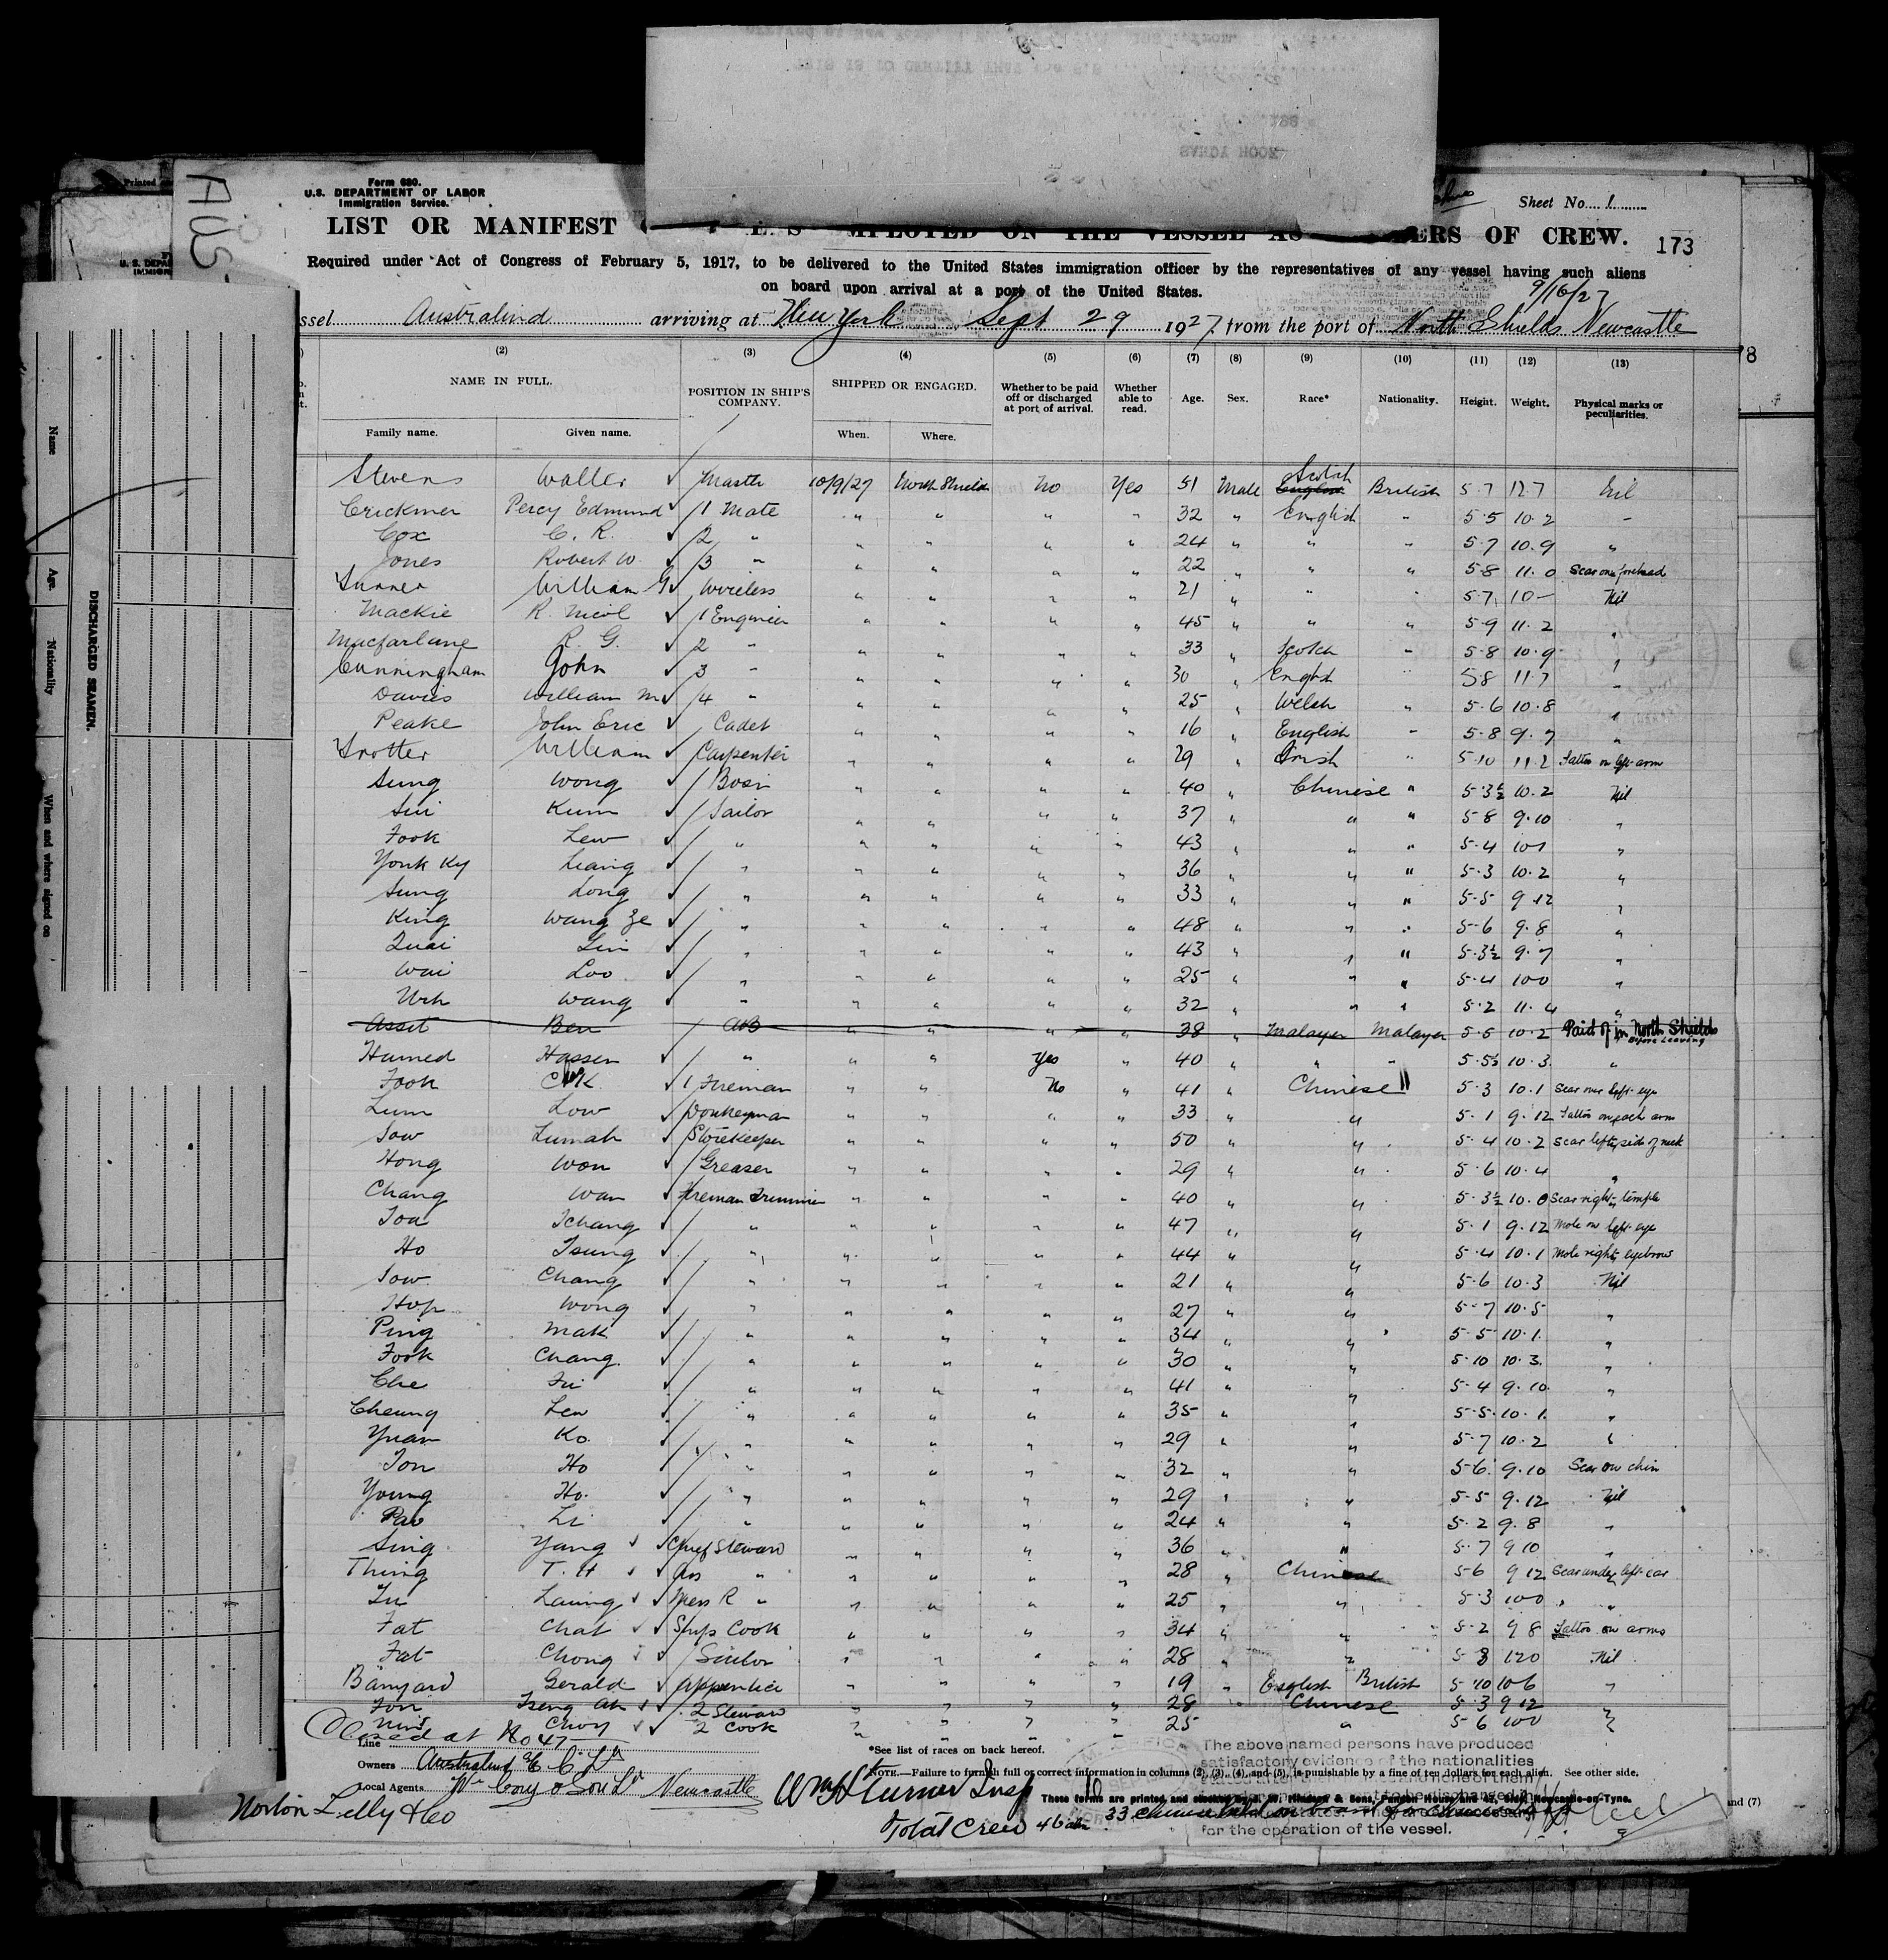 Form 680.
U.S. DEPARTMENT OF LABOR
Immigration Service.
Sheet No. 1
LIST OR MANIFEST EMPLOYED ON THE VESSEL AS ERS OF CREW.
173
Required under Act of Congress of February 5, 1917, to be delivered to the United States immigration officer by the representatives of any vessel having such aliens
on board upon arrival at a port of the United States.
9/16/27
ssel Australind arriving at New York Sept 29 1927, from the port of North Shields Newcastle
(2) (3) (4) (5) (6) (7) (8) (9) (10) (11) (12) (13)
NAME IN FULL. POSITION IN SHIP'S COMPANY. SHIPPED OR ENGAGED. Whether to be paid off or discharged at port of arrival. Whether able to read. Age. Sex. Race* Nationality. Height. Weight. Physical marks or peculiarities.
Family name. Given name. When. Where.
Stevens Walter Master 10/9/27 North Shields No Yes 51 Male English Scotch British 5.7 12.7 Nil
Crickmer Percy Edmund 1 Mate " " " " 32 " English " 5.5 10.2 "
Cox C. R. 2 " " " " " 24 " " " 5.7 10.9 "
Jones Robert W. 3 " " " " " 22 " " " 5.8 11.0 Scar on forehead
William G Wireless " " " " 21 " " " 5.7 10 - Nil
Mackie R. Nicol 1 Engineer " " " " 45 " " " 5.9 11.2 "
Macfarlane R. G. 2 " " " " " 33 " Scotch " 5.8 10.9 "
Cunningham John 3 " " " " " 30 " English " 5.8 11.7 "
Davies William M 4 " " " " " 25 " Welsh " 5.6 10.8 "
Peake John Eric Cadet " " " " 16 " English " 5.8 9.7 "
Trotter William Carpenter " " " " 29 " Irish " 5.10 11.2 Tattoo on left arm
Sung Wong Bosn " " " " 40 " Chinese " 5.3½ 10.2 Nil
Sui Kum Sailor " " " " 37 " " " 5.8 9.10 "
Fook Lew " " " " " 43 " " " 5.4 10.1 "
Yonk Ky Liang " " " " " 36 " " " 5.3 10.2 "
Sung Long " " " " " 33 " " " 5.5 9.12 "
King Wang Ze " " " " " 48 " " " 5.6 9.8 "
Quai Lin " " " " " 43 " " " 5.3½ 9.7 "
Wai Loo " " " " " 25 " " " 5.4 10.0 "
Urh Wang " " " " " 32 " " " 5.2 11.4 "
Asset Ben AB " " " " 38 " Malayer Malayer 5.5 10.2 Paid off in North Shields Before Leaving
Hamed Hassen " " " Yes " 40 " " " 5.5½ 10.3 "
Fook Fireman " " No " 41 " Chinese " 5.3 10.1 Scar over left eye
Lum Low Donkeyman " " " " 33 " " 5.1 9.12 Tattoo on each arm
Sow Lumah Storekeeper " " " " 50 " " 5.4 10.2 Scar left side of neck
Hong Won Greaser " " " " 29 " " 5.6 10.4 "
Chang Wan Fireman Trimmer " " " " 40 " " 5.3½ 10.0 Scar right temple
Toa Tchang " " " " " 47 " " 5.1 9.12 Mole on left eye
Ho Tsung " " " " " 44 " " 5.4 10.1 Mole right eyebrow
Sow Chang " " " " " 21 " " 5.6 10.3 Nil
Hop Wong " " " " " 27 " " 5.7 10.5 "
Ping Mak " " " " " 34 " " 5.5 10.1 "
Fook Chang " " " " " 30 " " 5.10 10.3 "
Che " " " " " 41 " " 5.4 9.10 "
Cheung Lew " " " " " 35 " " 5.5 10.1 "
Yuan Ko " " " " " 29 " " 5.7 10.2 "
Ton Ho " " " " " 32 " " 5.6 9.10 Scar on chin
Young Ho " " " " " 29 " " 5.5 9.12 Nil
Pao Li " " " " " 24 " " 5.2 9.8 "
Sing Yang Chief Steward " " " " 36 " " 5.7 9 10 "
Thing T. H Ass " " " " " 28 " Chinese 5.6 9 12 Scar under left ear
Laung Mess R " " " " " 25 " " 5.3 100 "
Fat Chat Ships Cook " " " " 34 " " 5.2 9 8 Tattoo on arms
Fat Chong Sailor " " " " 28 " " 5 3 120 Nil
Banyard Gerald Apprentice " " " " 19 " English British 5.10 10 6 "
Fon Tseng Ah 2 Steward " " " 28 Chinese 5.3 9 12 "
Choy 2 Cook " " " " 25 " 5 6 100 "
Closed at No 47
Line
Owners Australind
Local Agents Wm Cory & Son Ld Newcastle
Norton Lilly & Co
*See list of races on back hereof.
NOTE.—Failure to furnish full or correct information in columns (2), (3), (4), and (5), is punishable by a fine of ten dollars for each alien. See other side.
The above named persons have produced
satisfactory evidence of the nationalities
for the operation of the vessel.
Total Crew 46
DISCHARGED SEAMEN.
Name
Age.
Nationality
When and where signed on
and (7)